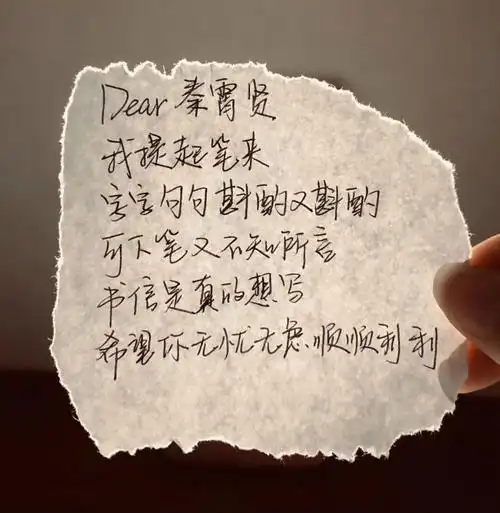 Dear 秦霄贤
我提起笔来
字字句句斟酌又斟酌
可下笔又不知所言
书信是真的想写
希望你无忧无虑.顺顺利利